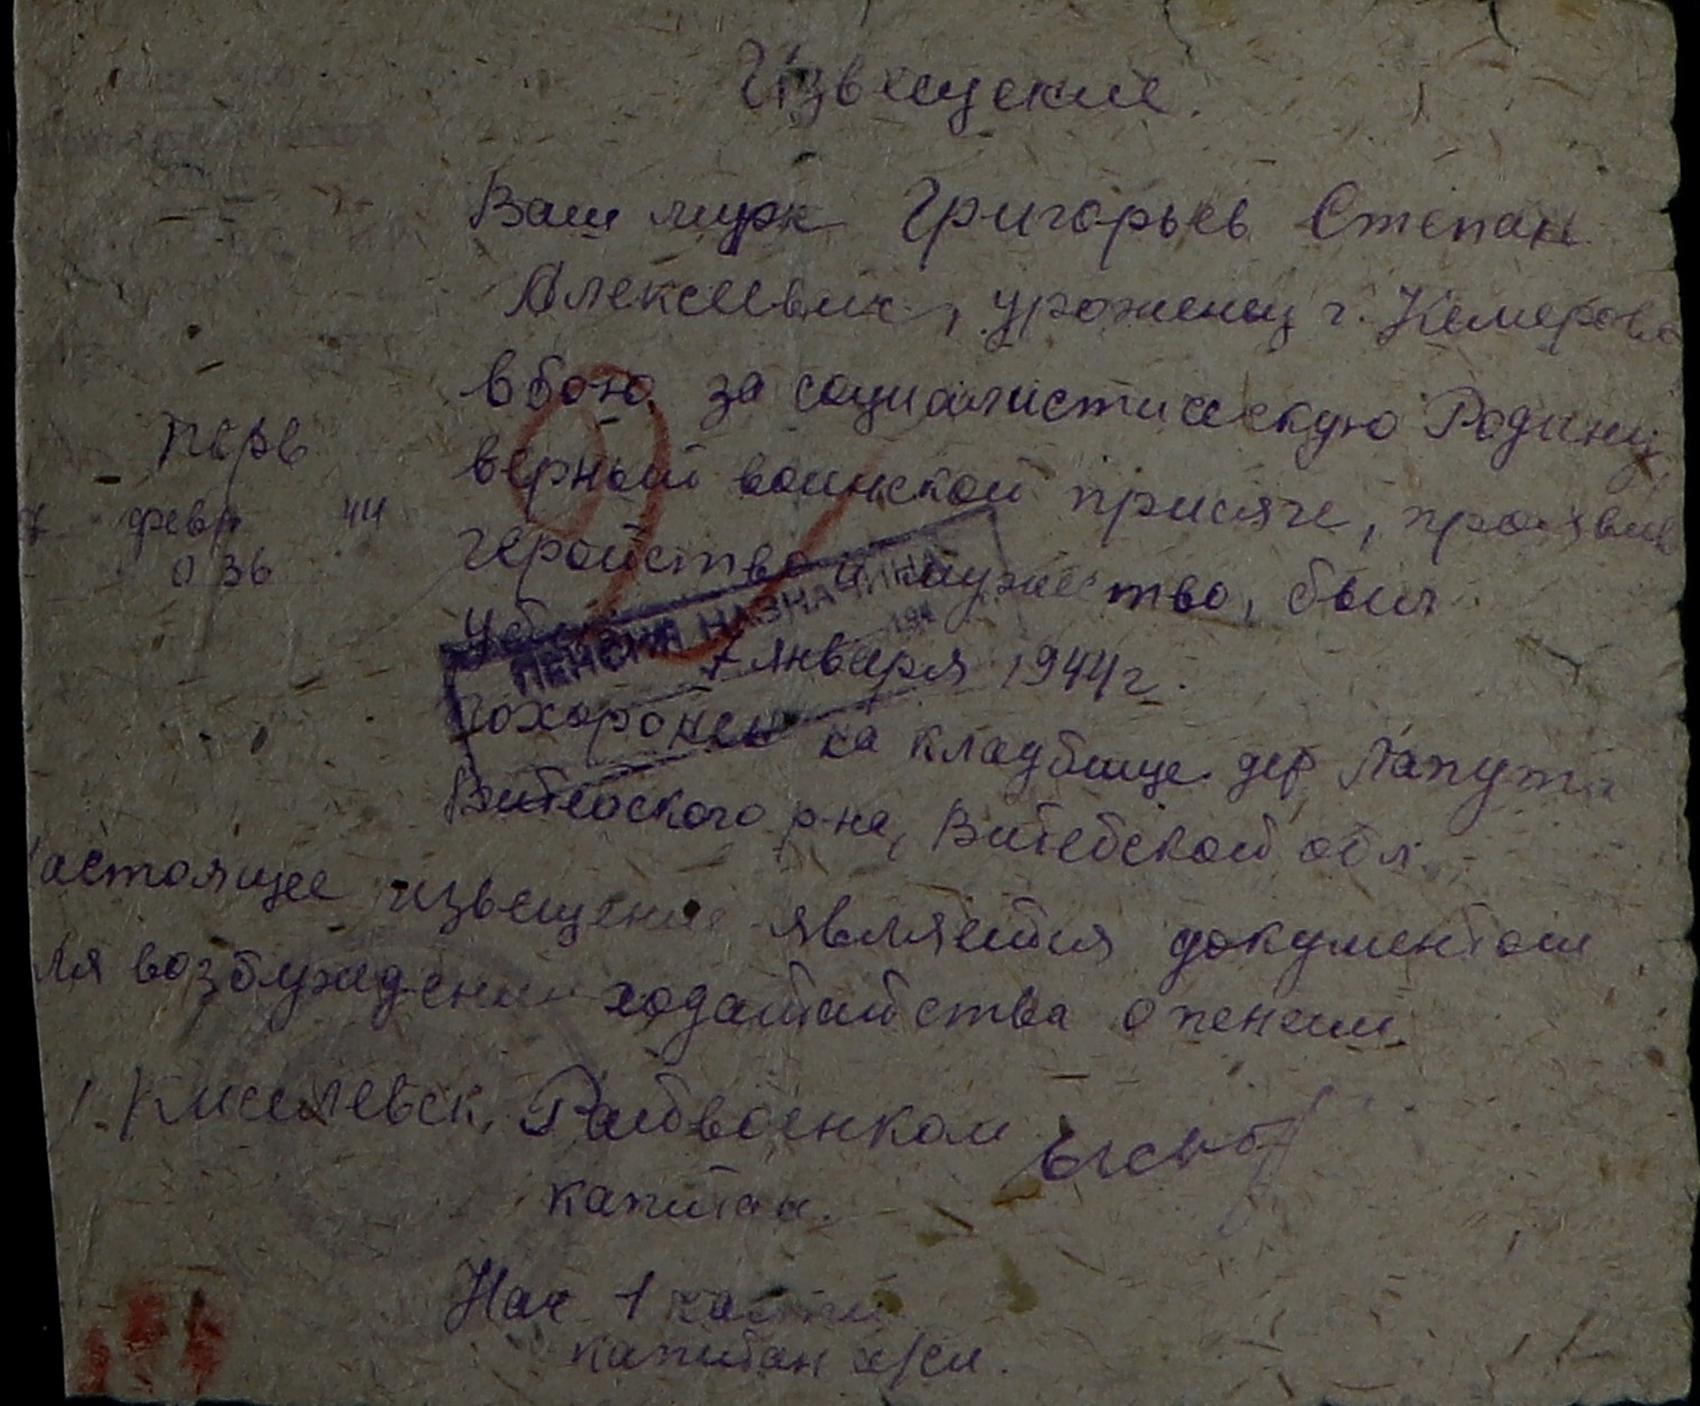 Извещение.
Ваш мурж Григорьев Степан
Алексеевич, уроженец г. Кемерово
в бою за социалистическую Родину,
верный воинской присяге, проявив
геройство и мужество, был
7 февр 44
0 36
ПЕНСИЯ НАЗНАЧЕНА
194
7 января 1944 г.
Похоронен на кладбище дер Лапути
Витебского р-на, Витебской обл.
астоящее извещение является документом
ля возбуждении ходатайства о пенсии.
г. Киселевск, Райвоенком
капитан.
Нач 1 части
капитан а/сл.